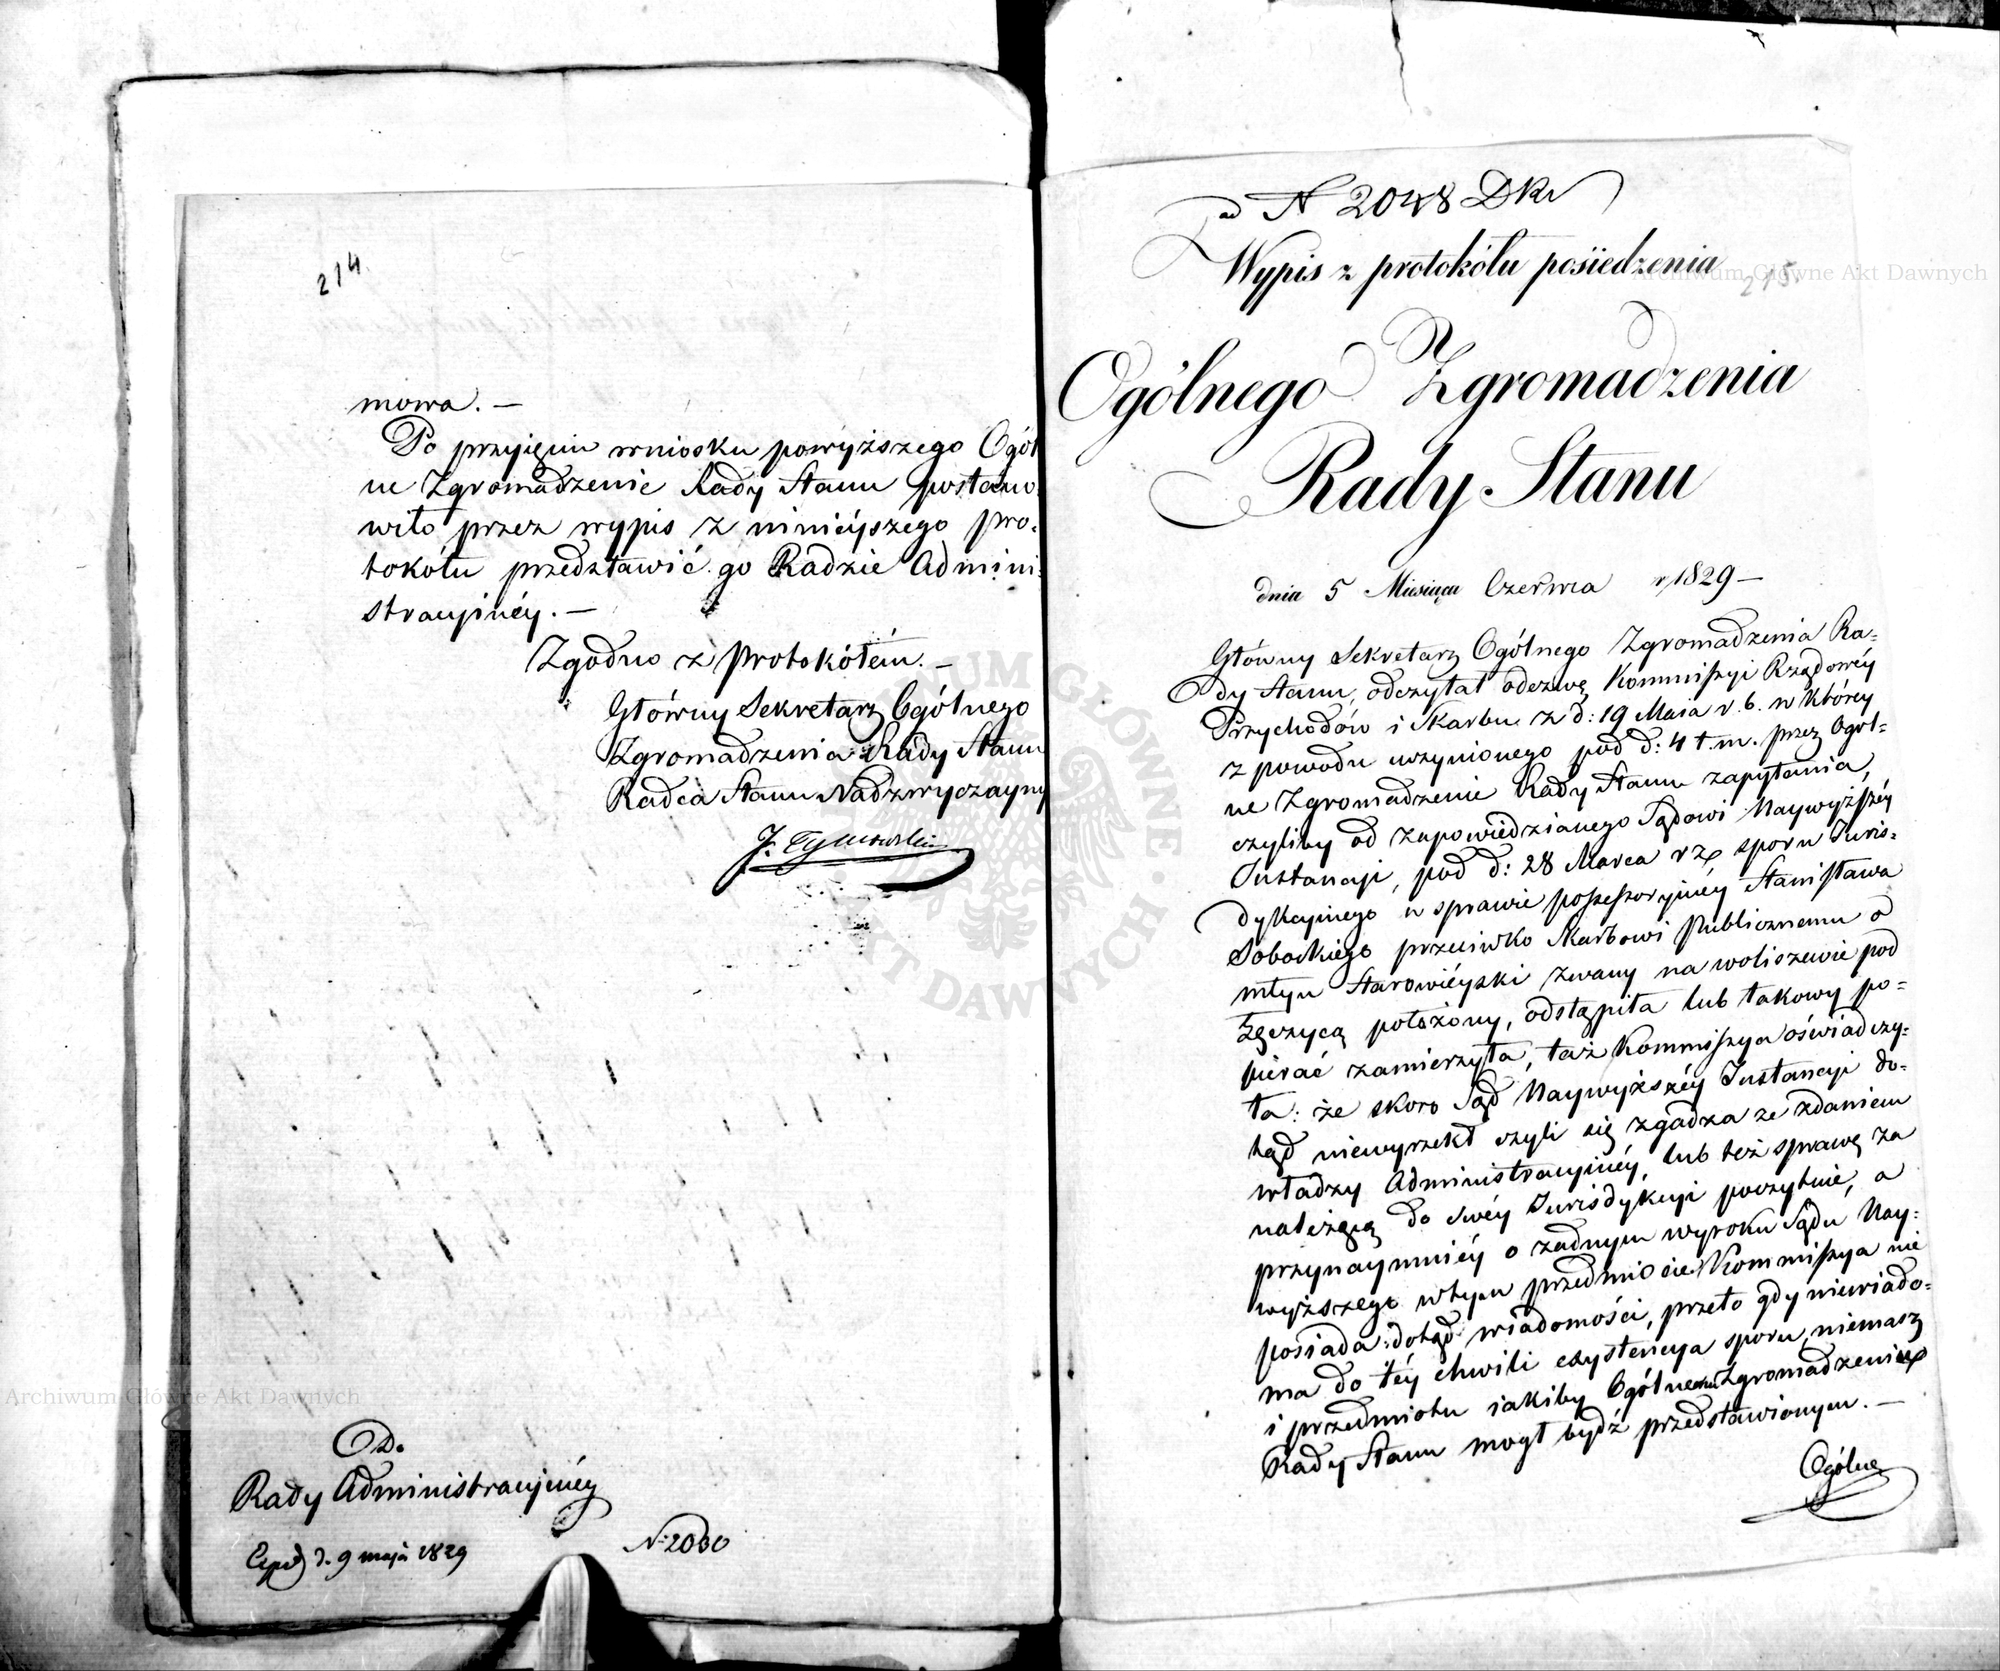 214.
mowa. —
Po przyjęciu wniosku powyższego Ogól
ne Zgromadzenie Rady Stanu postano
wiło przez wypis z ninieyszego pro-
tokółu przedstawić go Radzie Admini
stracyinéy. —
Zgodno z Protokółem. —
Główny Sekretarz Ogólnego
Zgromadzenia Rady Stanu
Radca Stanu Nadzwyczayny
J. Tymowski
Do
Rady Administracyinéy
Exped d. 9 maja 1829
N: 2030
ad N 2048 DKr
Wypis z protokółu posiedzenia
215.
Ogólnego Zgromadzenia
Rady Stanu
dnia 5 Miesiąca Czerwca r. 1829 —
Główny Sekretarz Ogólnego Zgromadzenia Ra=
dy Stanu, odczytał odezwę Kommissyi Rządowéy
Przychodów i Skarbu z d: 19 Maia r. b. w którey
z powodu uczynionego pod d: 4 t. m. przez Ogól=
ne Zgromadzenie Rady Stanu zapytania,
czyliby od zapowiedzianego Sądowi Naywyższéy
Instancyi, pod d: 28 Marca rz sporu Juris=
dykcyinego w sprawie possessoryinéy Stanisława
Sobockiego przeciwko Skarbowi Publicznemu o
młyn Starowiéyski zwany na woliszewie pod
Łęczycą położony, odstąpiła lub takowy po=
pierać zamierzyła, taż Kommissya oświadczy=
ła: że skoro Sąd Naywyższéy Instancyi do=
tąd niewyrzekł czyli się zgadza ze zdaniem
władzy Administracyinéy, lub też sprawę za
należącą do swéy Jurisdykcyi poczytuie, a
przynaymniéy o żadnym wyroku Sądu Nay=
wyższego w tym przedmiocie Kommissya nie
posiada dotąd wiadomości, przeto gdy niewiado=
ma do téy chwili exystencya sporu, niemasz
i przedmiotu iakiby Ogólnemu Zgromadzeniu
Rady Stanu mogł bydź przedstawionym. —
Ogólne
Archiwum Główne Akt Dawnych
Archiwum Główne Akt Dawnych
ARCHIWUM GŁÓWNE · AKT DAWNYCH ·